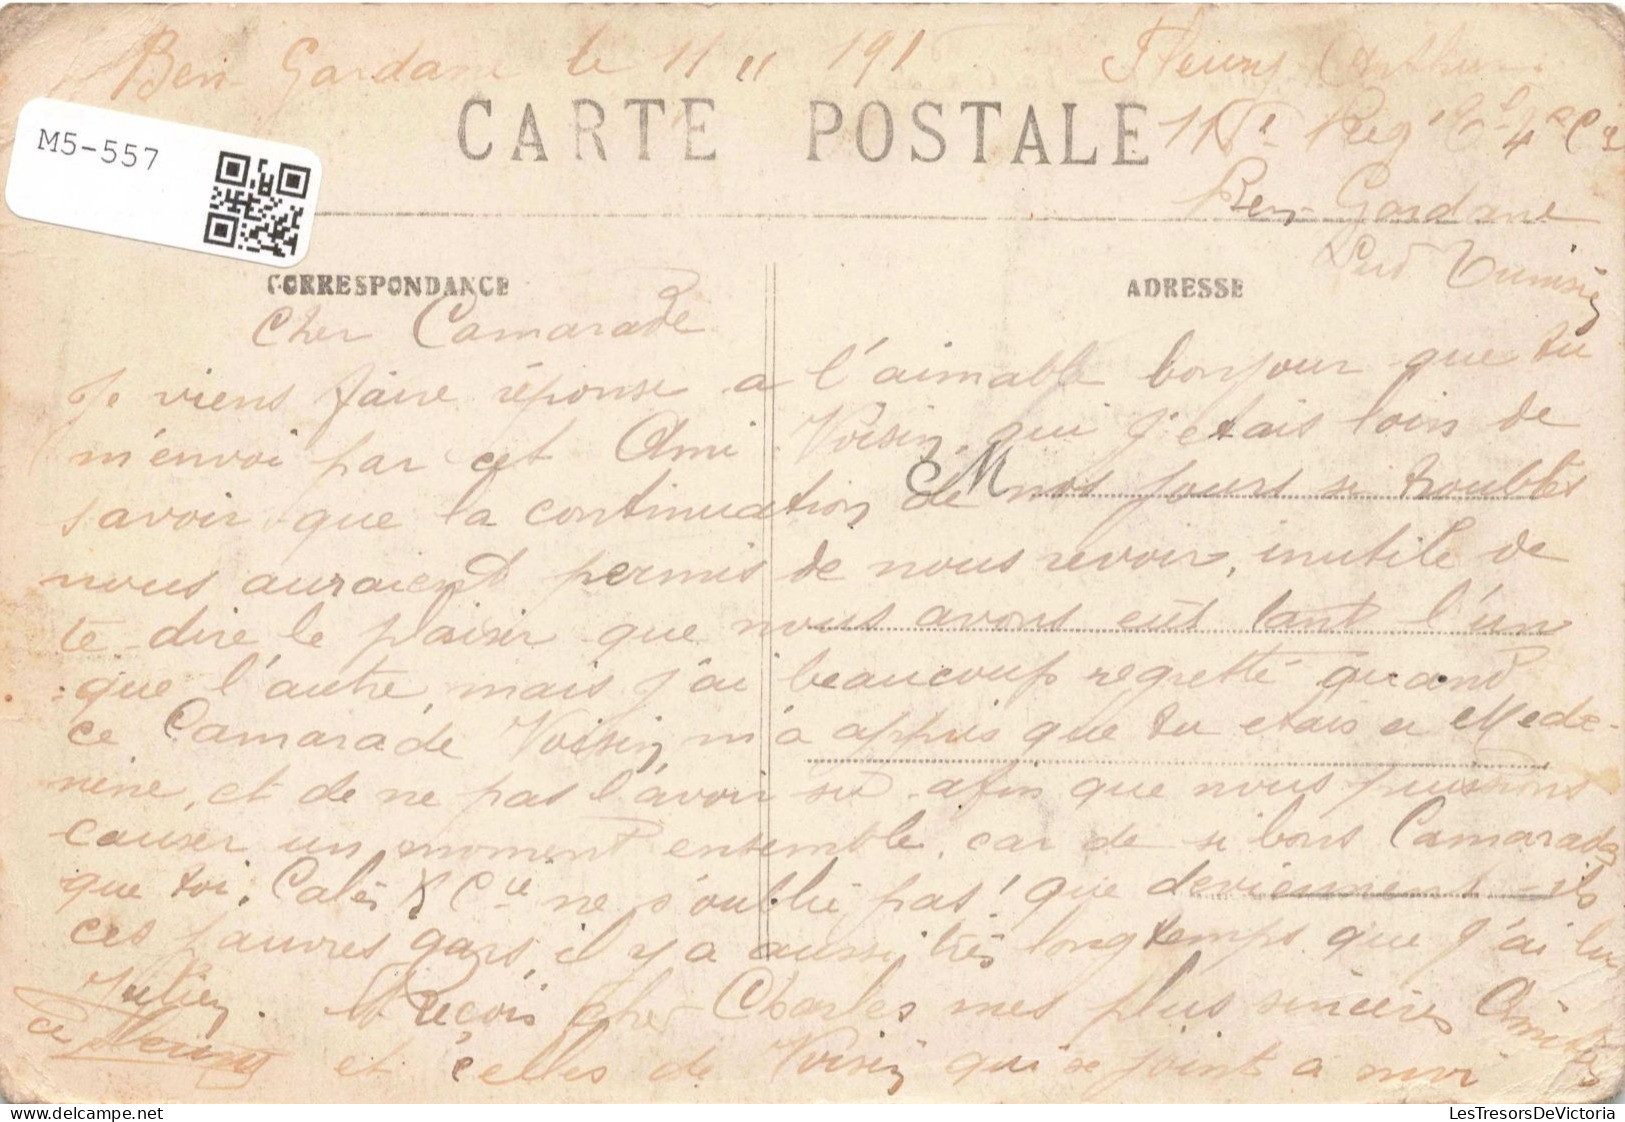 Ben Gardane le 11 11 191
Fleury Arthur
CARTE POSTALE
M5-557
Ben Gardane
Sud Tunisie
CORRESPONDANCE
ADRESSE
Cher Camarade
Je viens faire réponse a l'aimable bonjour que tu
m'envoi par cet Ami Voisin, qui j'etais loin de
savoir que la continuation de nos jours si troublés
nous auraient permis de nous revoir, inutile de
te dire le plaisir que nous avons eût tant l'un
que l'autre, mais j'ai beaucoup regretté quand
ce Camarade Voisin m'a appris que tu etais a Mede-
nine, et de ne pas l'avoir su afin que nous puissions
causer un moment ensemble, car de si bons Camarades
que toi, Calès & Cie ne s'oublié pas! que deviennent-ils
ces pauvres gars, il y a aussi très longtemps que j'ai lu
Julien. Reçois cher Charles mes plus sincères Amitiés
ce Fleury et celles de Voisin qui se joint a moi
LesTresorsDeVictoria